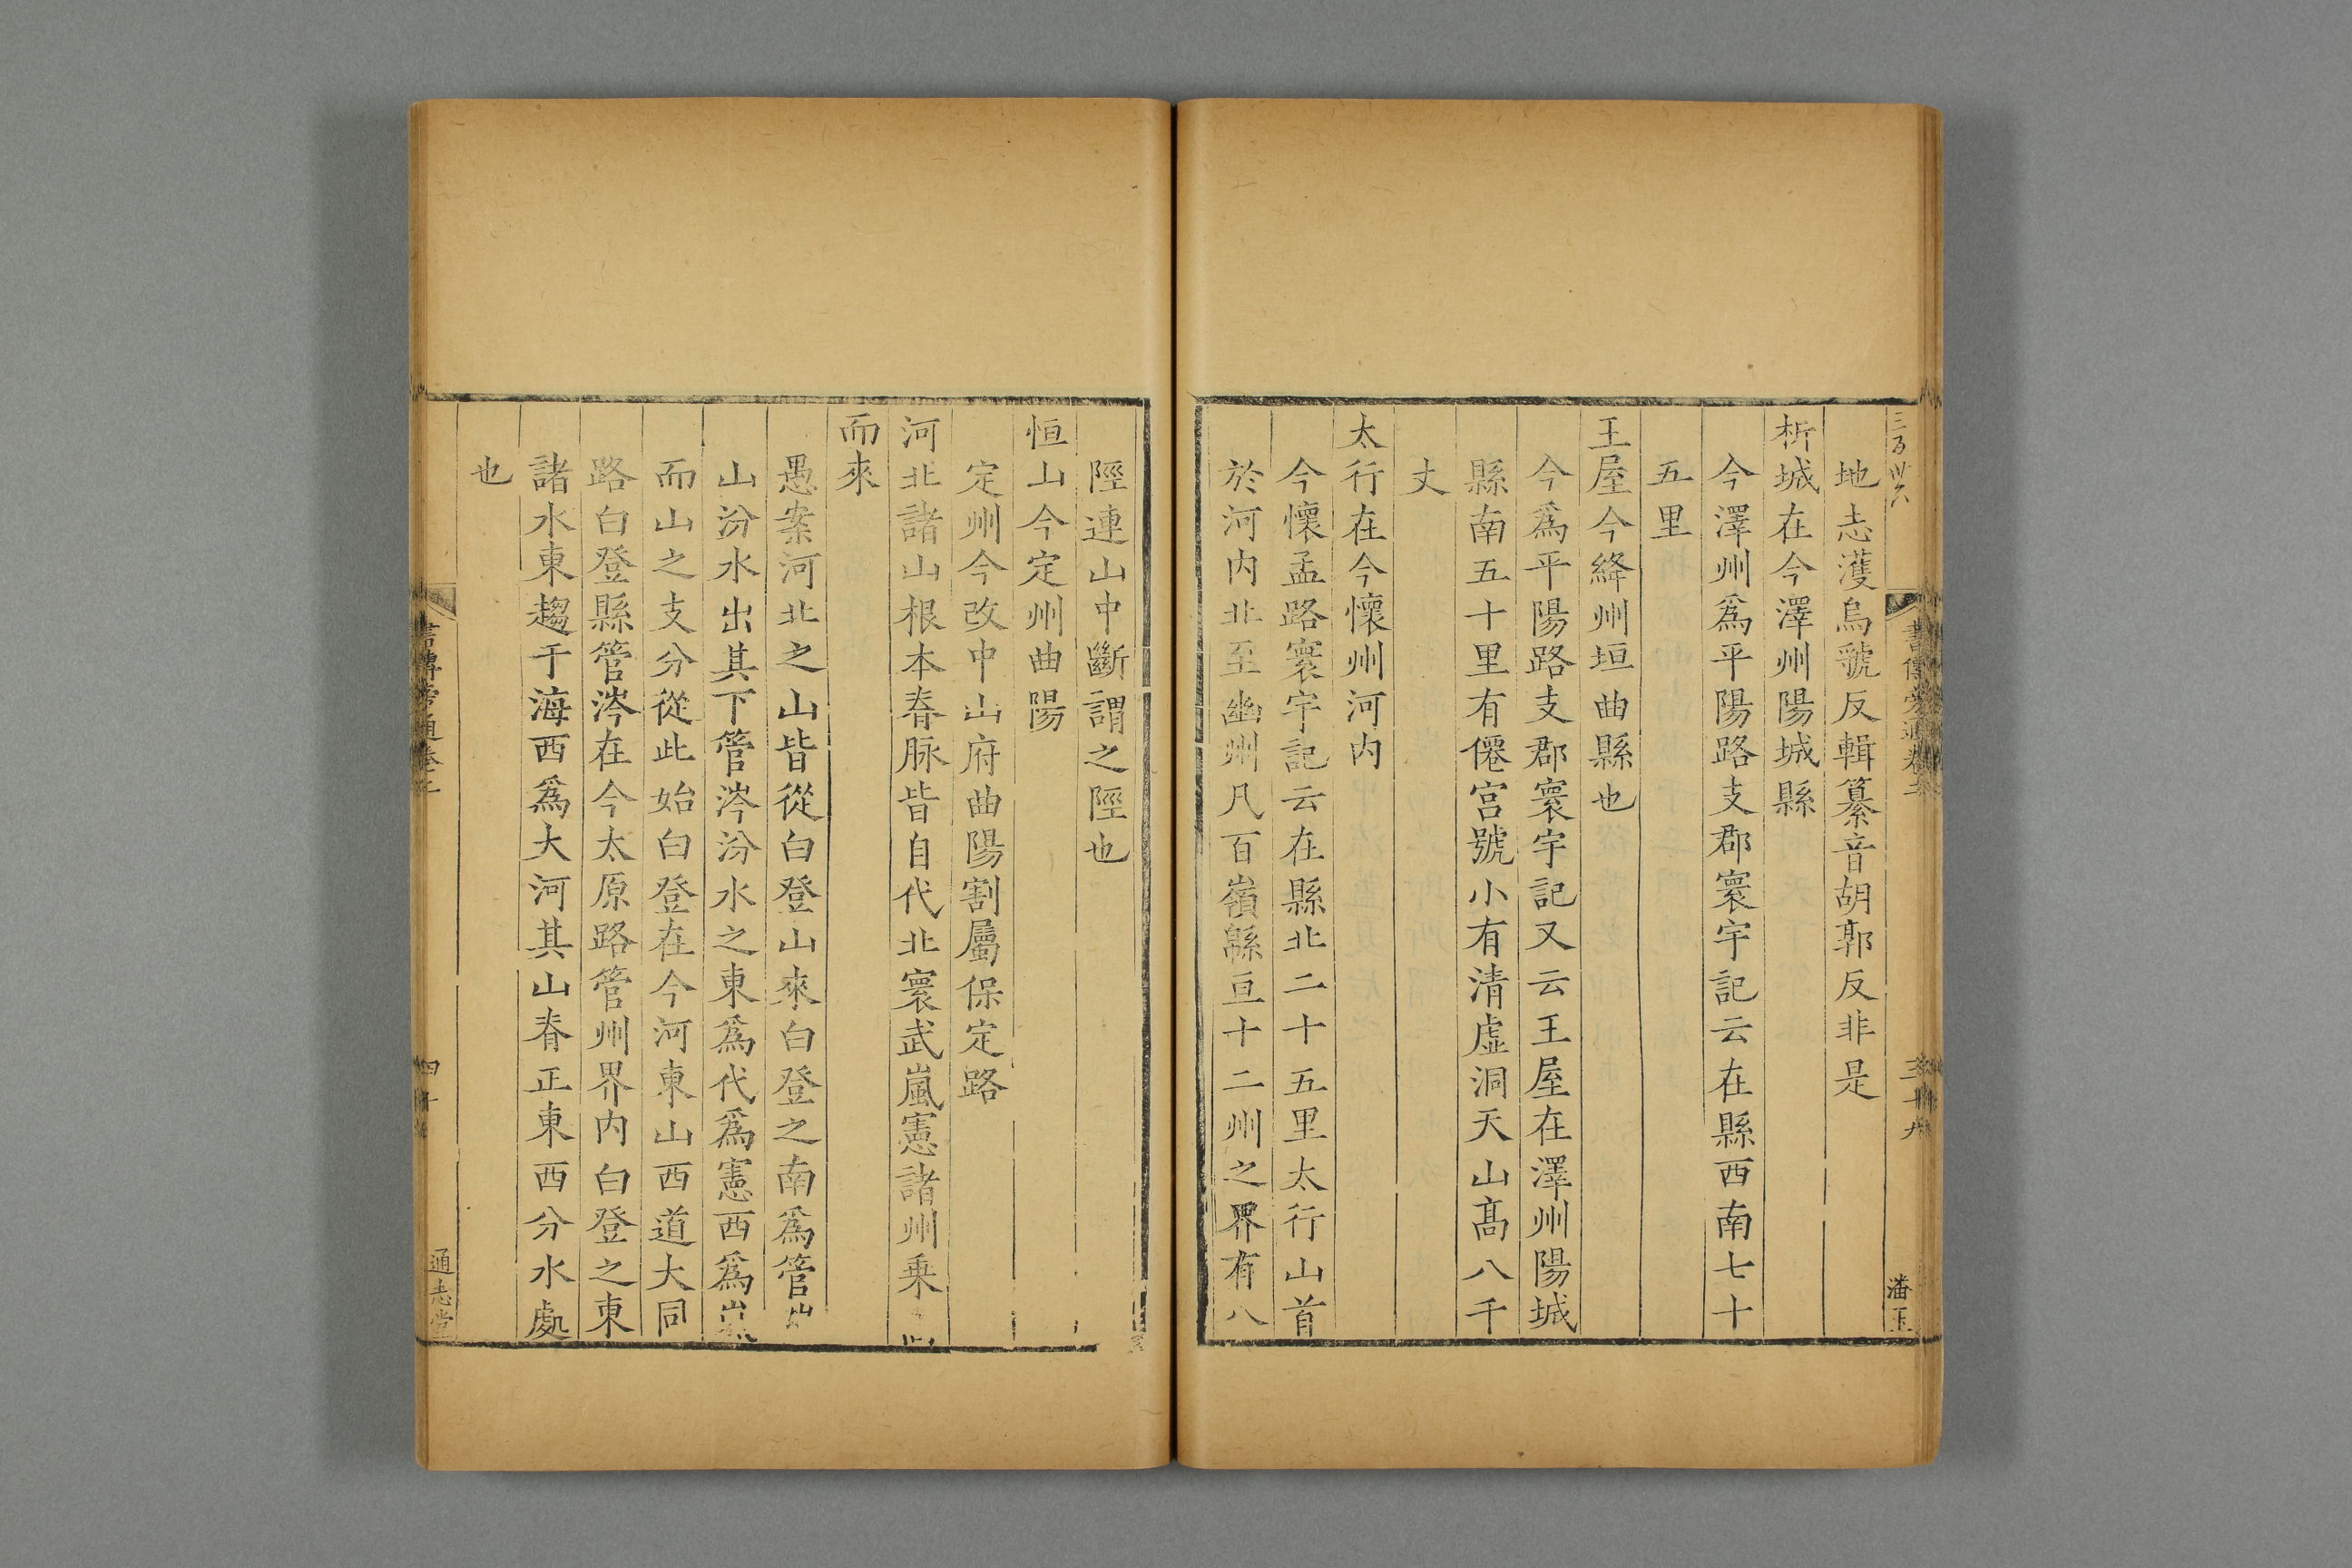 地志濩烏虢反輯纂音胡郭反非是
析城在今澤州陽城縣
今澤州爲平陽路支郡寰宇記云在縣西南七十
五里
王屋今絳州垣曲縣也
今爲平陽路支郡寰宇記又云王屋在澤州陽城
縣南五十里有僊宮號小有清虛洞天山髙八千
丈
太行在今懷州河内
今懷孟路寰宇記云在縣北二十五里太行山首
於河内北至幽州凡百嶺緜亘十二州之界有八
陘連山中斷謂之陘也
恒山今定州曲陽
定州今改中山府曲陽割屬保定路
河北諸山根本脊脉皆自代北寰武嵐憲諸州乗
而來
愚案河北之山皆從白登山來白登之南爲管
山汾水出其下管涔汾水之東爲代爲憲西爲
而山之支分從此始白登在今河東山西道大同
路白登縣管涔在今太原路管州界内白登之東
諸水東趨于海西爲大河其山脊正東西分水處
也
書傳旁通卷
三十九
潘玉
四十
通志堂